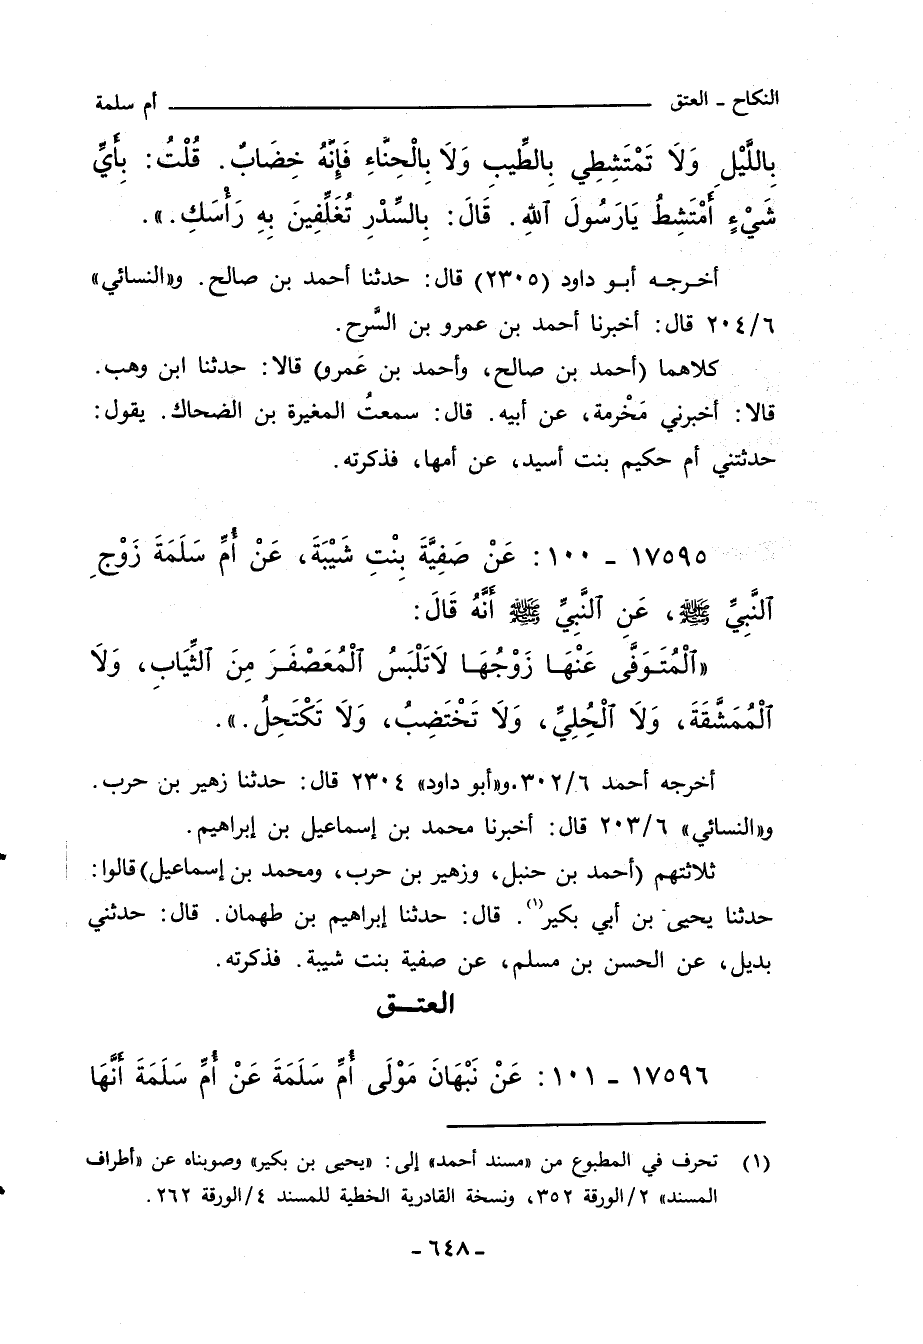 النكاح - العتق أم سلمة
بِاللَّيْلِ وَلَا تَمْتَشِطِي بِالطِّيبِ وَلَا بِالْحِنَّاءِ فَإِنَّهُ خِضَابٌ. قُلْتُ: بِأَيِّ
شَيْءٍ أَمْتَشِطُ يَارَسُولَ ٱللهِ. قَالَ: بِالسِّدْرِ تُغَلِّفِينَ بِهِ رَأْسَكِ.».
أخرجه أبو داود (٢٣٠٥) قال: حدثنا أحمد بن صالح. و«النسائي»
٢٠٤/٦ قال: أخبرنا أحمد بن عمرو بن السَّرح.
كلاهما (أحمد بن صالح، وأحمد بن عَمرو) قالا: حدثنا ابن وهب.
قالا: أخبرني مَخْرمة، عن أبيه. قال: سمعتُ المغيرة بن الضحاك. يقول:
حدثتني أم حكيم بنت أسيد، عن أمها، فذكرته.
١٧٥٩٥ - ١٠٠: عَنْ صَفِيَّةَ بِنْتِ شَيْبَةَ، عَنْ أُمِّ سَلَمَةَ زَوْجِ
ٱلنَّبِيِّ ﷺ، عَنِ ٱلنَّبِيِّ ﷺ أَنَّهُ قَالَ:
«ٱلْمُتَوَفَّى عَنْهَا زَوْجُهَا لَاتَلْبَسُ ٱلْمُعَصْفَرَ مِنَ ٱلثِّيَابِ، وَلَا
ٱلْمُمَشَّقَةَ، وَلَا ٱلْحُلِيَّ، وَلَا تَخْتَضِبُ، وَلَا تَكْتَحِلُ.».
أخرجه أحمد ٣٠٢/٦.و«أبو داود» ٢٣٠٤ قال: حدثنا زهير بن حرب.
و«النسائي» ٢٠٣/٦ قال: أخبرنا محمد بن إسماعيل بن إبراهيم.
ثلاثتهم (أحمد بن حنبل، وزهير بن حرب، ومحمد بن إسماعيل)قالوا:
حدثنا يحيى بن أبي بكير(١). قال: حدثنا إبراهيم بن طهمان. قال: حدثني
بديل، عن الحسن بن مسلم، عن صفية بنت شيبة. فذكرته.
العتـــق
١٧٥٩٦ - ١٠١: عَنْ نَبْهَانَ مَوْلَى أُمِّ سَلَمَةَ عَنْ أُمِّ سَلَمَةَ أَنَّهَا
(١) تحرف في المطبوع من «مسند أحمد» إلى: «يحيى بن بكير» وصوبناه عن «أطراف
المسند» ٢/الورقة ٣٥٢، ونسخة القادرية الخطية للمسند ٤/الورقة ٢٦٢.
- ٦٤٨ -